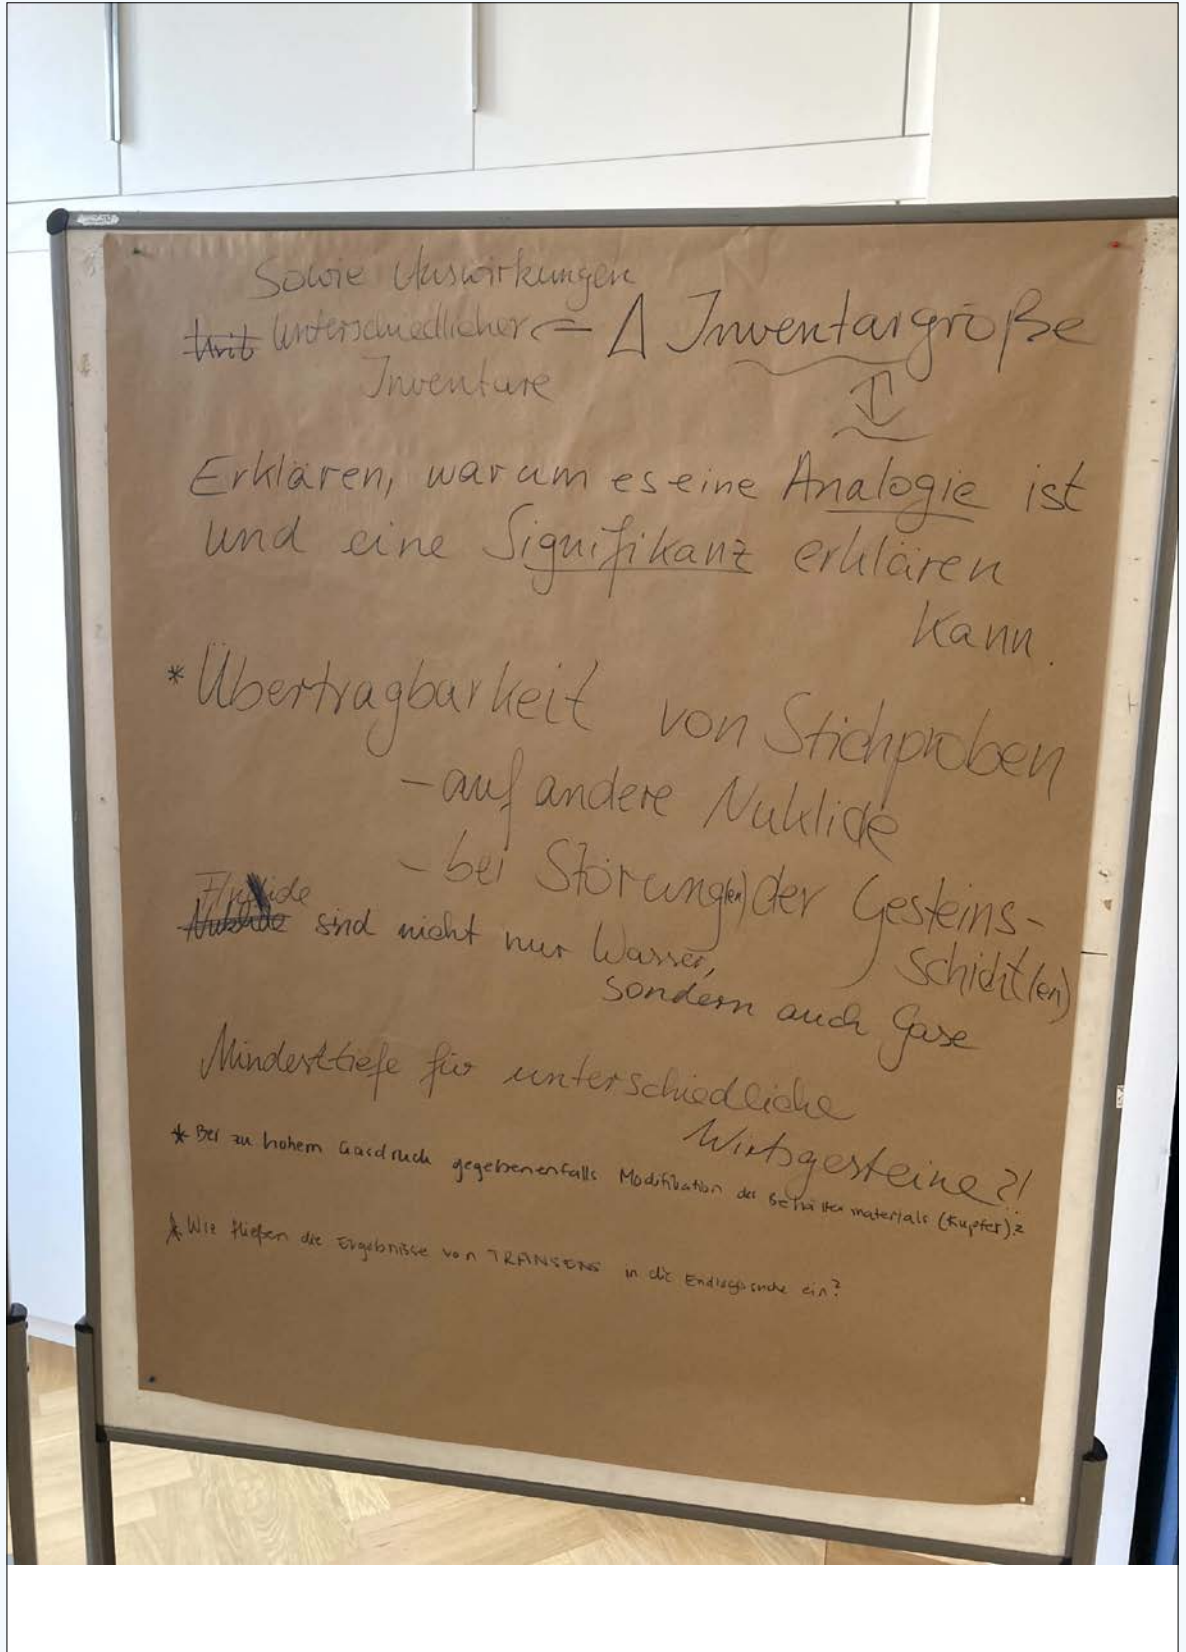 Sowie Auswirkungen
unterschiedlicher <= Δ Inventargröße
Inventare
Erklären, warum es eine Analogie ist
und eine Signifikanz erklären
kann.
* Übertragbarkeit von Stichproben
- auf andere Nuklide
- bei Störung(en) der Gesteins-
schicht(en)
Fluide
Nuklide sind nicht nur Wasser,
sondern auch Gase
Mindesttiefe für unterschiedliche
Wirtsgesteine?!
* Bei zu hohem Gasdruck gegebenenfalls Modifikation des Behältermaterials (Kupfer)?
* Wie fließen die Ergebnisse von TRANSENS in die Endlagersuche ein?